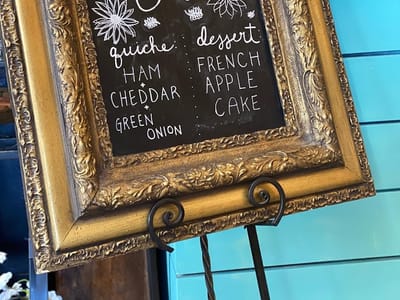 quiche
HAM
+
CHEDDAR
+
GREEN
ONION
dessert
FRENCH
APPLE
CAKE